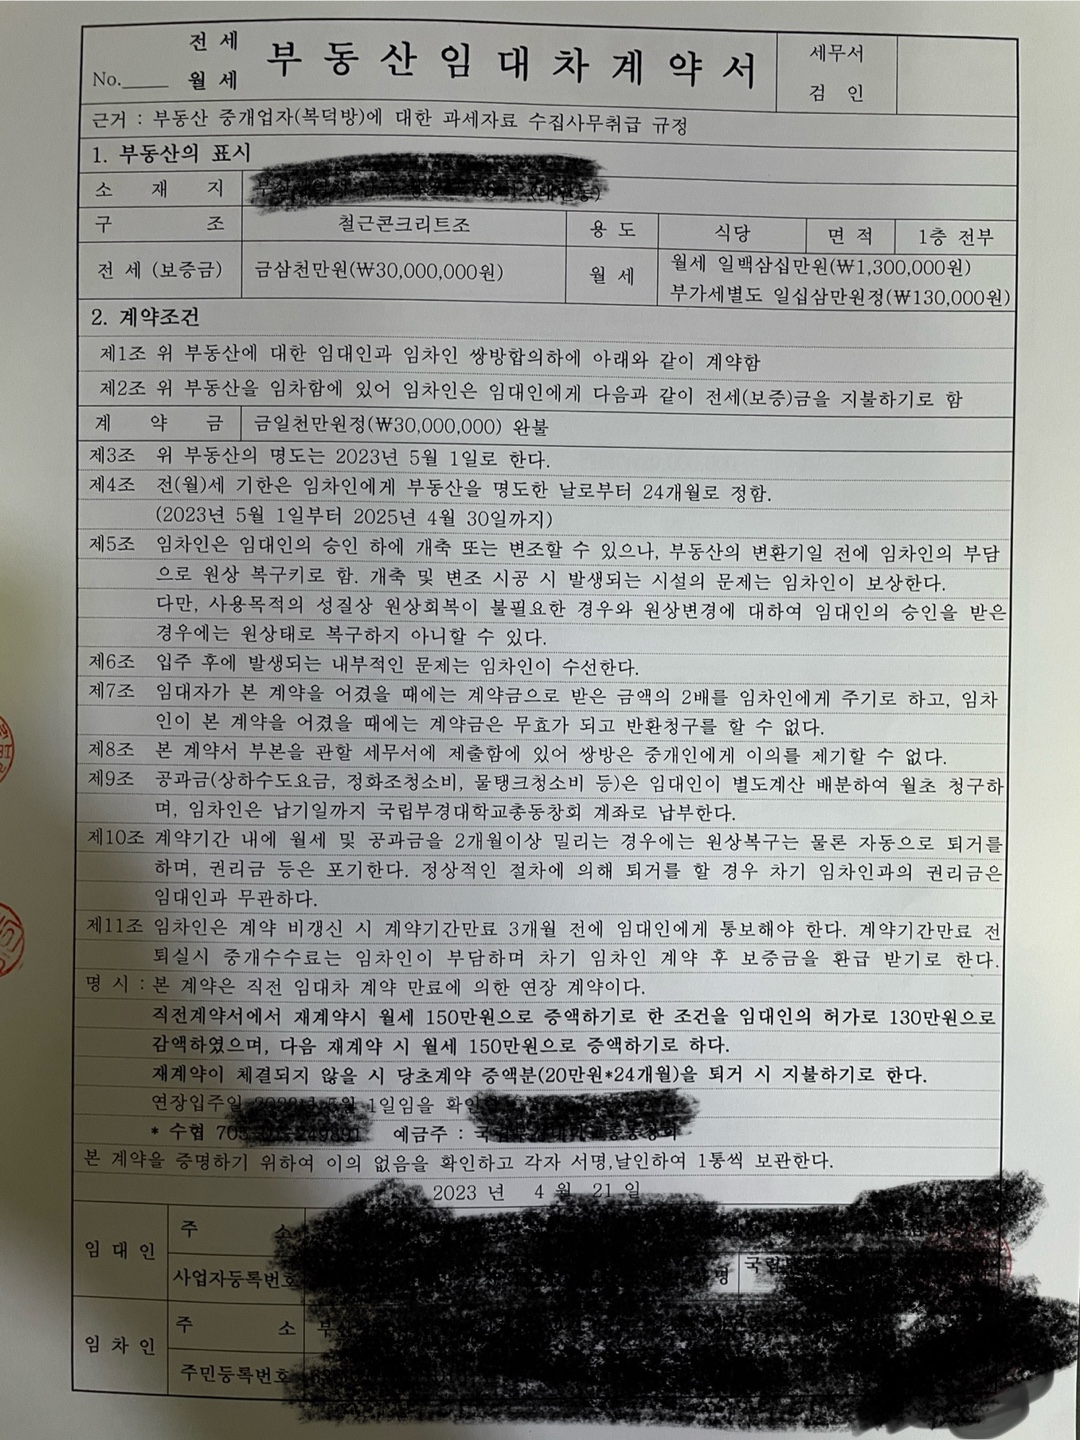 전 세
No.____ 월 세
부 동 산 임 대 차 계 약 서
세무서
검 인
근거 : 부동산 중개업자(복덕방)에 대한 과세자료 수집사무취급 규정
1. 부동산의 표시
소 재 지
구 조 철근콘크리트조 용 도 식당 면 적 1층 전부
전 세 (보증금) 금삼천만원(₩30,000,000원) 월 세 월세 일백삼십만원(₩1,300,000원)
부가세별도 일십삼만원정(₩130,000원)
2. 계약조건
제1조 위 부동산에 대한 임대인과 임차인 쌍방합의하에 아래와 같이 계약함
제2조 위 부동산을 임차함에 있어 임차인은 임대인에게 다음과 같이 전세(보증)금을 지불하기로 함
계 약 금 금일천만원정(₩30,000,000) 완불
제3조 위 부동산의 명도는 2023년 5월 1일로 한다.
제4조 전(월)세 기한은 임차인에게 부동산을 명도한 날로부터 24개월로 정함.
(2023년 5월 1일부터 2025년 4월 30일까지)
제5조 임차인은 임대인의 승인 하에 개축 또는 변조할 수 있으나, 부동산의 변환기일 전에 임차인의 부담
으로 원상 복구키로 함. 개축 및 변조 시공 시 발생되는 시설의 문제는 임차인이 보상한다.
다만, 사용목적의 성질상 원상회복이 불필요한 경우와 원상변경에 대하여 임대인의 승인을 받은
경우에는 원상태로 복구하지 아니할 수 있다.
제6조 입주 후에 발생되는 내부적인 문제는 임차인이 수선한다.
제7조 임대자가 본 계약을 어겼을 때에는 계약금으로 받은 금액의 2배를 임차인에게 주기로 하고, 임차
인이 본 계약을 어겼을 때에는 계약금은 무효가 되고 반환청구를 할 수 없다.
제8조 본 계약서 부본을 관할 세무서에 제출함에 있어 쌍방은 중개인에게 이의를 제기할 수 없다.
제9조 공과금(상하수도요금, 정화조청소비, 물탱크청소비 등)은 임대인이 별도계산 배분하여 월초 청구하
며, 임차인은 납기일까지 국립부경대학교총동창회 계좌로 납부한다.
제10조 계약기간 내에 월세 및 공과금을 2개월이상 밀리는 경우에는 원상복구는 물론 자동으로 퇴거를
하며, 권리금 등은 포기한다. 정상적인 절차에 의해 퇴거를 할 경우 차기 임차인과의 권리금은
임대인과 무관하다.
제11조 임차인은 계약 비갱신 시 계약기간만료 3개월 전에 임대인에게 통보해야 한다. 계약기간만료 전
퇴실시 중개수수료는 임차인이 부담하며 차기 임차인 계약 후 보증금을 환급 받기로 한다.
명 시 : 본 계약은 직전 임대차 계약 만료에 의한 연장 계약이다.
직전계약서에서 재계약시 월세 150만원으로 증액하기로 한 조건을 임대인의 허가로 130만원으로
감액하였으며, 다음 재계약 시 월세 150만원으로 증액하기로 하다.
재계약이 체결되지 않을 시 당초계약 증액분(20만원*24개월)을 퇴거 시 지불하기로 한다.
연장입주일 1일임을 확인
* 수협 예금주 :
본 계약을 증명하기 위하여 이의 없음을 확인하고 각자 서명,날인하여 1통씩 보관한다.
2023 년 4 월 21 일
임 대 인 주 소
사업자등록번호 명 국립
임 차 인 주 소
주민등록번호